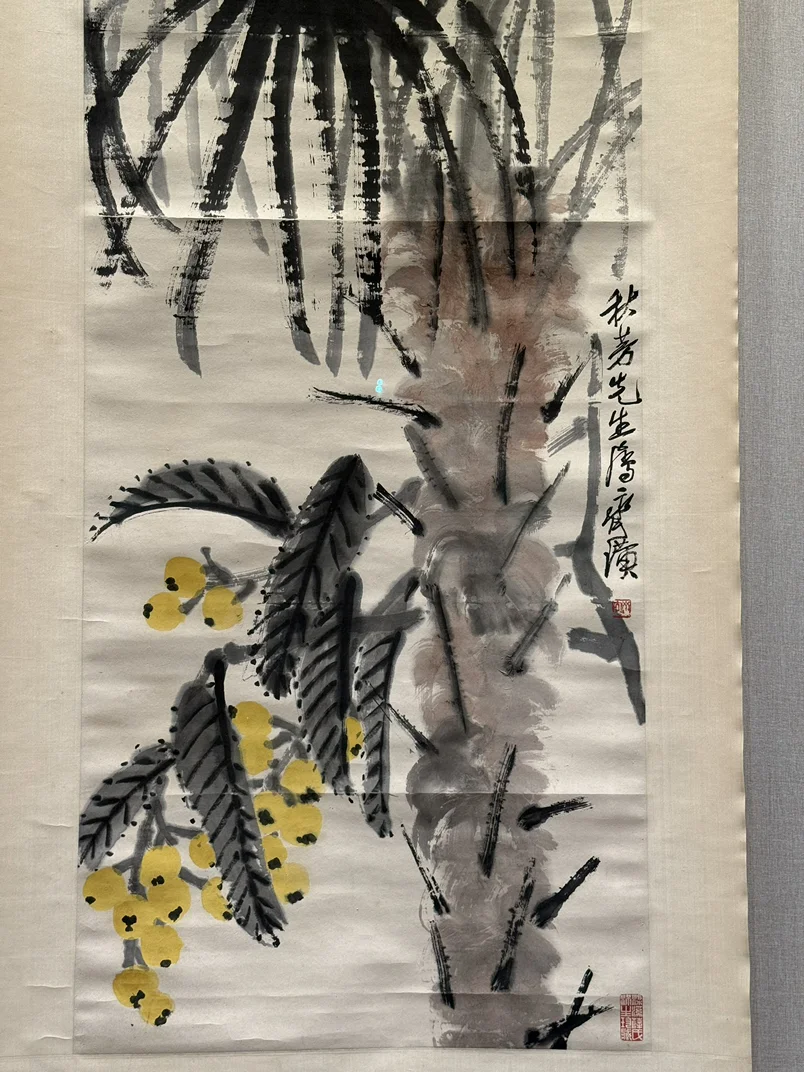 秋芳先生
齊璜